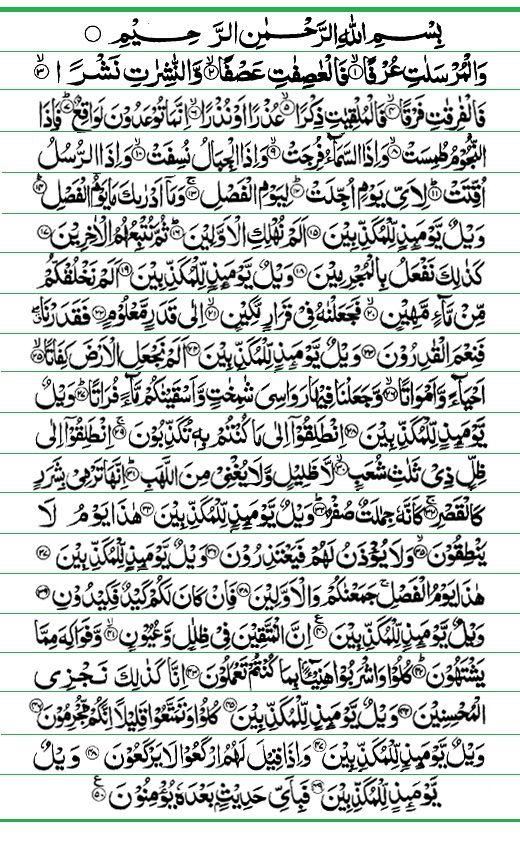 بِسْمِ اللهِ الرَّحْمٰنِ الرَّحِيْمِ ○
وَالْمُرْسَلٰتِ عُرْفًا ۙ﴿۱﴾ فَالْعٰصِفٰتِ عَصْفًا ۙ﴿۲﴾ وَّالنّٰشِرٰتِ نَشْرًا ۙ﴿۳﴾
فَالْفٰرِقٰتِ فَرْقًا ۙ﴿۴﴾ فَالْمُلْقِيٰتِ ذِكْرًا ۙ﴿۵﴾ عُذْرًا اَوْ نُذْرًا ۙ﴿۶﴾ اِنَّمَا تُوْعَدُوْنَ لَوَاقِعٌ ؕ﴿۷﴾ فَاِذَا
النُّجُوْمُ طُمِسَتْ ۙ﴿۸﴾ وَاِذَا السَّمَآءُ فُرِجَتْ ۙ﴿۹﴾ وَاِذَا الْجِبَالُ نُسِفَتْ ۙ﴿۱۰﴾ وَاِذَا الرُّسُلُ
اُقِّتَتْ ؕ﴿۱۱﴾ لِاَيِّ يَوْمٍ اُجِّلَتْ ؕ﴿۱۲﴾ لِيَوْمِ الْفَصْلِ ۚ﴿۱۳﴾ وَمَآ اَدْرٰىكَ مَا يَوْمُ الْفَصْلِ ؕ﴿۱۴﴾
وَيْلٌ يَّوْمَئِذٍ لِّلْمُكَذِّبِيْنَ ﴿۱۵﴾ اَلَمْ نُهْلِكِ الْاَوَّلِيْنَ ؕ﴿۱۶﴾ ثُمَّ نُتْبِعُهُمُ الْاٰخِرِيْنَ ﴿۱۷﴾
كَذٰلِكَ نَفْعَلُ بِالْمُجْرِمِيْنَ ﴿۱۸﴾ وَيْلٌ يَّوْمَئِذٍ لِّلْمُكَذِّبِيْنَ ﴿۱۹﴾ اَلَمْ نَخْلُقْكُّمْ
مِّنْ مَّآءٍ مَّهِيْنٍ ۙ﴿۲۰﴾ فَجَعَلْنٰهُ فِيْ قَرَارٍ مَّكِيْنٍ ۙ﴿۲۱﴾ اِلٰى قَدَرٍ مَّعْلُوْمٍ ۙ﴿۲۲﴾ فَقَدَرْنَا ۖ
فَنِعْمَ الْقٰدِرُوْنَ ﴿۲۳﴾ وَيْلٌ يَّوْمَئِذٍ لِّلْمُكَذِّبِيْنَ ﴿۲۴﴾ اَلَمْ نَجْعَلِ الْاَرْضَ كِفَاتًا ۙ﴿۲۵﴾
اَحْيَآءً وَّاَمْوَاتًا ۙ﴿۲۶﴾ وَّجَعَلْنَا فِيْهَا رَوَاسِيَ شٰمِخٰتٍ وَّاَسْقَيْنٰكُمْ مَّآءً فُرَاتًا ؕ﴿۲۷﴾ وَيْلٌ
يَّوْمَئِذٍ لِّلْمُكَذِّبِيْنَ ﴿۲۸﴾ اِنْطَلِقُوْٓا اِلٰى مَا كُنْتُمْ بِهٖ تُكَذِّبُوْنَ ۚ﴿۲۹﴾ اِنْطَلِقُوْٓا اِلٰى
ظِلٍّ ذِيْ ثَلٰثِ شُعَبٍ ۙ﴿۳۰﴾ لَّا ظَلِيْلٍ وَّلَا يُغْنِيْ مِنَ اللَّهَبِ ؕ﴿۳۱﴾ اِنَّهَا تَرْمِيْ بِشَرَرٍ
كَالْقَصْرِ ۚ﴿۳۲﴾ كَاَنَّهٗ جِمٰلَتٌ صُفْرٌ ؕ﴿۳۳﴾ وَيْلٌ يَّوْمَئِذٍ لِّلْمُكَذِّبِيْنَ ﴿۳۴﴾ هٰذَا يَوْمُ لَا
يَنْطِقُوْنَ ۙ﴿۳۵﴾ وَلَا يُؤْذَنُ لَهُمْ فَيَعْتَذِرُوْنَ ﴿۳۶﴾ وَيْلٌ يَّوْمَئِذٍ لِّلْمُكَذِّبِيْنَ ﴿۳۷﴾
هٰذَا يَوْمُ الْفَصْلِ ۚ جَمَعْنٰكُمْ وَالْاَوَّلِيْنَ ﴿۳۸﴾ فَاِنْ كَانَ لَكُمْ كَيْدٌ فَكِيْدُوْنِ ﴿۳۹﴾
وَيْلٌ يَّوْمَئِذٍ لِّلْمُكَذِّبِيْنَ ﴿۴۰﴾ اِنَّ الْمُتَّقِيْنَ فِيْ ظِلٰلٍ وَّعُيُوْنٍ ۙ﴿۴۱﴾ وَّفَوَاكِهَ مِمَّا
يَشْتَهُوْنَ ؕ﴿۴۲﴾ كُلُوْا وَاشْرَبُوْا هَنِيْٓئًۢا بِمَا كُنْتُمْ تَعْمَلُوْنَ ﴿۴۳﴾ اِنَّا كَذٰلِكَ نَجْزِي
الْمُحْسِنِيْنَ ﴿۴۴﴾ وَيْلٌ يَّوْمَئِذٍ لِّلْمُكَذِّبِيْنَ ﴿۴۵﴾ كُلُوْا وَتَمَتَّعُوْا قَلِيْلًا اِنَّكُمْ مُّجْرِمُوْنَ ﴿۴۶﴾
وَيْلٌ يَّوْمَئِذٍ لِّلْمُكَذِّبِيْنَ ﴿۴۷﴾ وَاِذَا قِيْلَ لَهُمُ ارْكَعُوْا لَا يَرْكَعُوْنَ ﴿۴۸﴾ وَيْلٌ
يَّوْمَئِذٍ لِّلْمُكَذِّبِيْنَ ﴿۴۹﴾ فَبِاَيِّ حَدِيْثٍۭ بَعْدَهٗ يُؤْمِنُوْنَ ﴿۵۰﴾